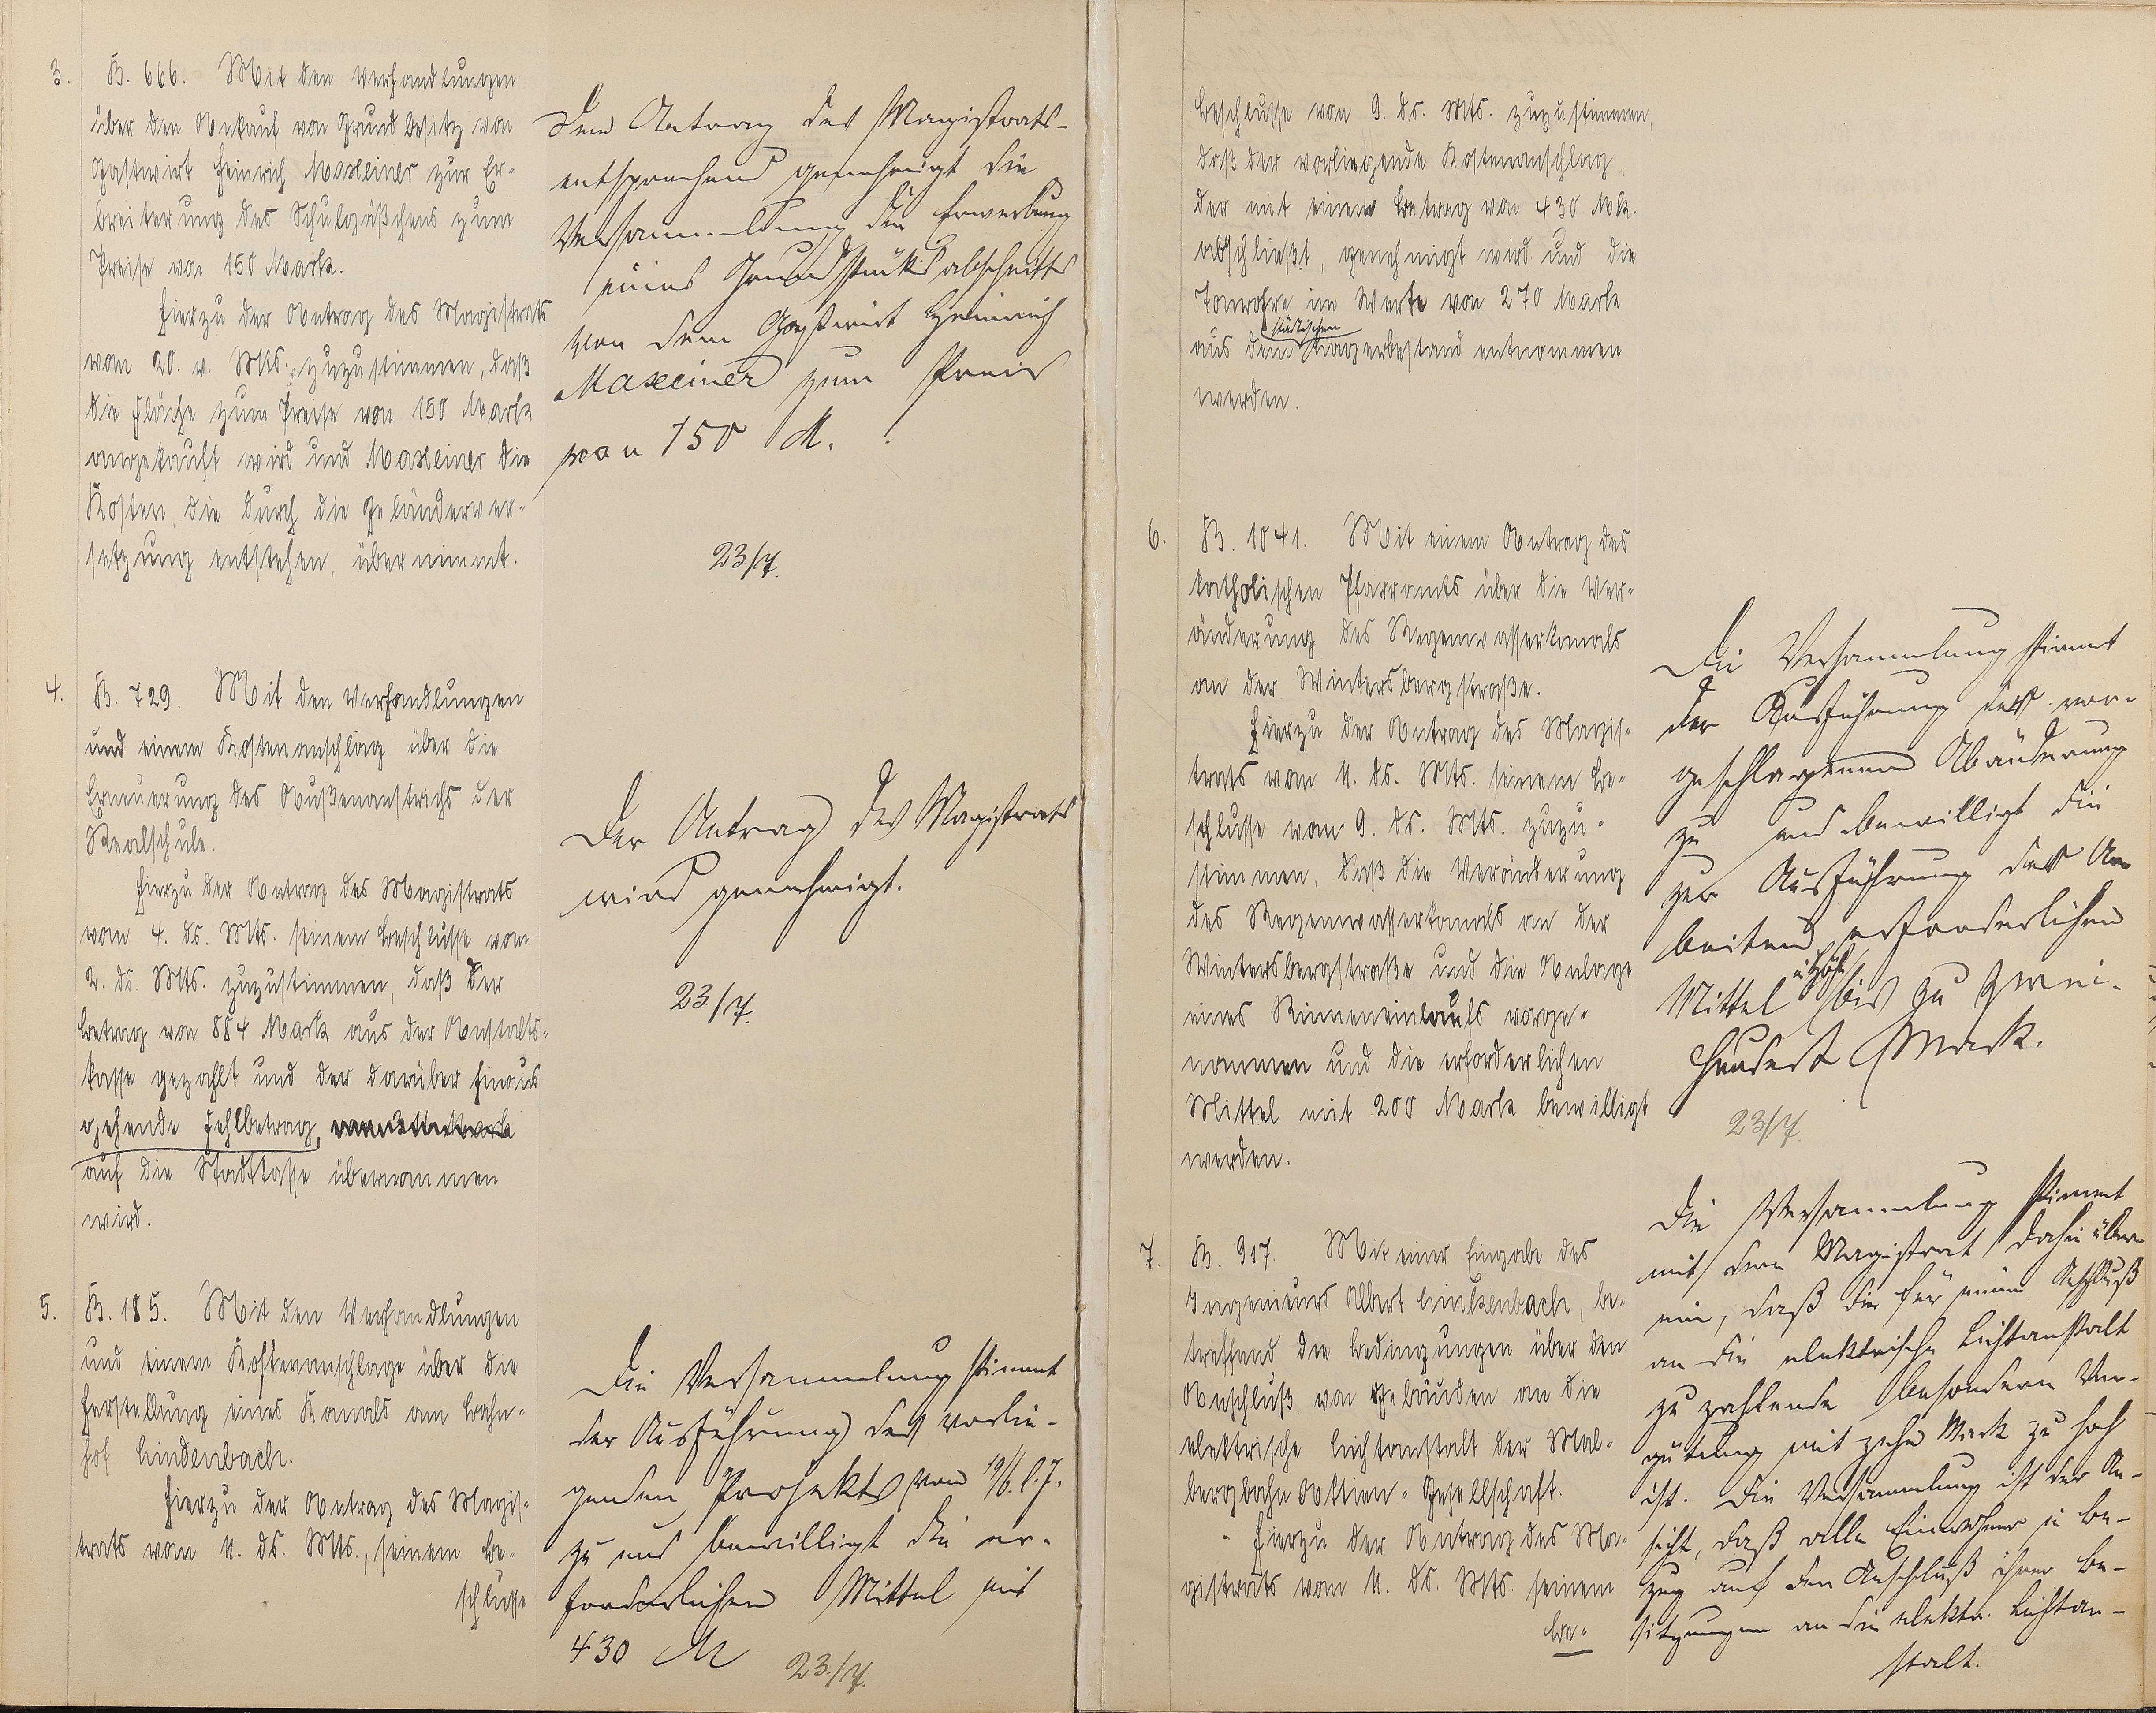 3. B. 666. Mit den Verhandlungen
über den Ankauf von Grundbesitz von
Gastwirt Heinrich Maxeiner zur Er-
breiterung des Schulgäßchens zum
Preise von 150 Mark.
Hierzu der Antrag des Magistrats
vom 20. v. Mts., zuzustimmen, daß
die Fläche zum Preise von 150 Mark
angekauft wird und Maxeiner die
Kosten, die durch die Geländerver-
setzung entstehen, übernimmt.
Dem Antrag des Magistrats
entsprechend genehmigt die
Versammlung die Erwerbung
eines Grundstücksabschnitts
von dem Gastwirt Heinrich
Maxeiner zum Preis
von 150 M.
23/7.
4. B. 729. Mit den Verhandlungen
und einem Kostenanschlag über die
Erneuerung des Außenanstrichs der
Realschule.
Hierzu der Antrag des Magistrats
vom 4. ds. Mts. seinem Beschlusse vom
2. ds. Mts. zuzustimmen, daß der
Betrag von 884 Mark aus der Anstalts-
kasse gezahlt und der darüber hinaus
gehende Fehlbetrag,
auf die Stadtkasse übernommen
wird.
Der Antrag des Magistrats
wird genehmigt.
23/7.
5. B. 185. Mit den Verhandlungen
und einem Kostenanschlage über die
Herstellung eines Kanals am Bahn-
hof Lindenbach.
Hierzu der Antrag des Magis-
trats vom 11. ds. Mts., seinem Be-
schlusse
Die Versammlung stimmt
der Ausführung des vorlie-
genden Projekts von 19/6. l. J.
zu und bewilligt die er-
forderlichen Mittel mit
430 M
23./7.
Beschlusse vom 9. ds. Mts. zuzustimmen,
daß der vorliegende Kostenanschlag,
der mit einem Betrag von 430 Mk.
abschließt, genehmigt wird und die
Tonrohre im Werte von 270 Mark
städtischen
aus dem Lagerbestand entnommen
werden.
6. B. 1041. Mit einem Antrag des
katholischen Pfarramts über die Ver-
änderung des Regenwasserkanals
an der Wintersbergstraße.
Hierzu der Antrag des Magis-
trats vom 11. ds. Mts. seinem Be-
schlusse vom 9. ds. Mts. zuzu-
stimmen, daß die Veränderung
des Regenwasserkanals an der
Wintersbergstraße und die Anlage
eines Rinneneinlaufs vorge-
nommen und die erforderlichen
Mittel mit 200 Mark bewilligt
werden.
Die Versammlung stimmt
der Ausführung der vor-
geschlagenen Abänderung
zu und bewilligt die
zur Ausführung der Ar-
beiten erforderlichen
Mittel bis zu Zwei-
hundert Mark.
23/7.
7. B. 917. Mit einer Eingabe des
Ingenieurs Albert Linkenbach, be-
treffend die Bedingungen über den
Anschluß von Gebäuden an die
elektrische Lichtanstalt der Mal-
bergbahn Aktien-Gesellschaft.
Hierzu der Antrag des Ma-
gistrats vom 11. ds. Mts. seinem
Be-
Die Versammlung stimmt
mit dem Magistrat dahin über-
ein, daß die für einen Anschluß
an die elektrische Lichtanstalt
zu zahlende besondere Ver-
gütung mit zehn Mark zu hoch
ist. Die Versammlung ist der An-
sicht, daß alle Einwohner in be-
zug auf den Anschluß ihrer Be-
sitzungen an die elektr. Lichtan-
stalt.